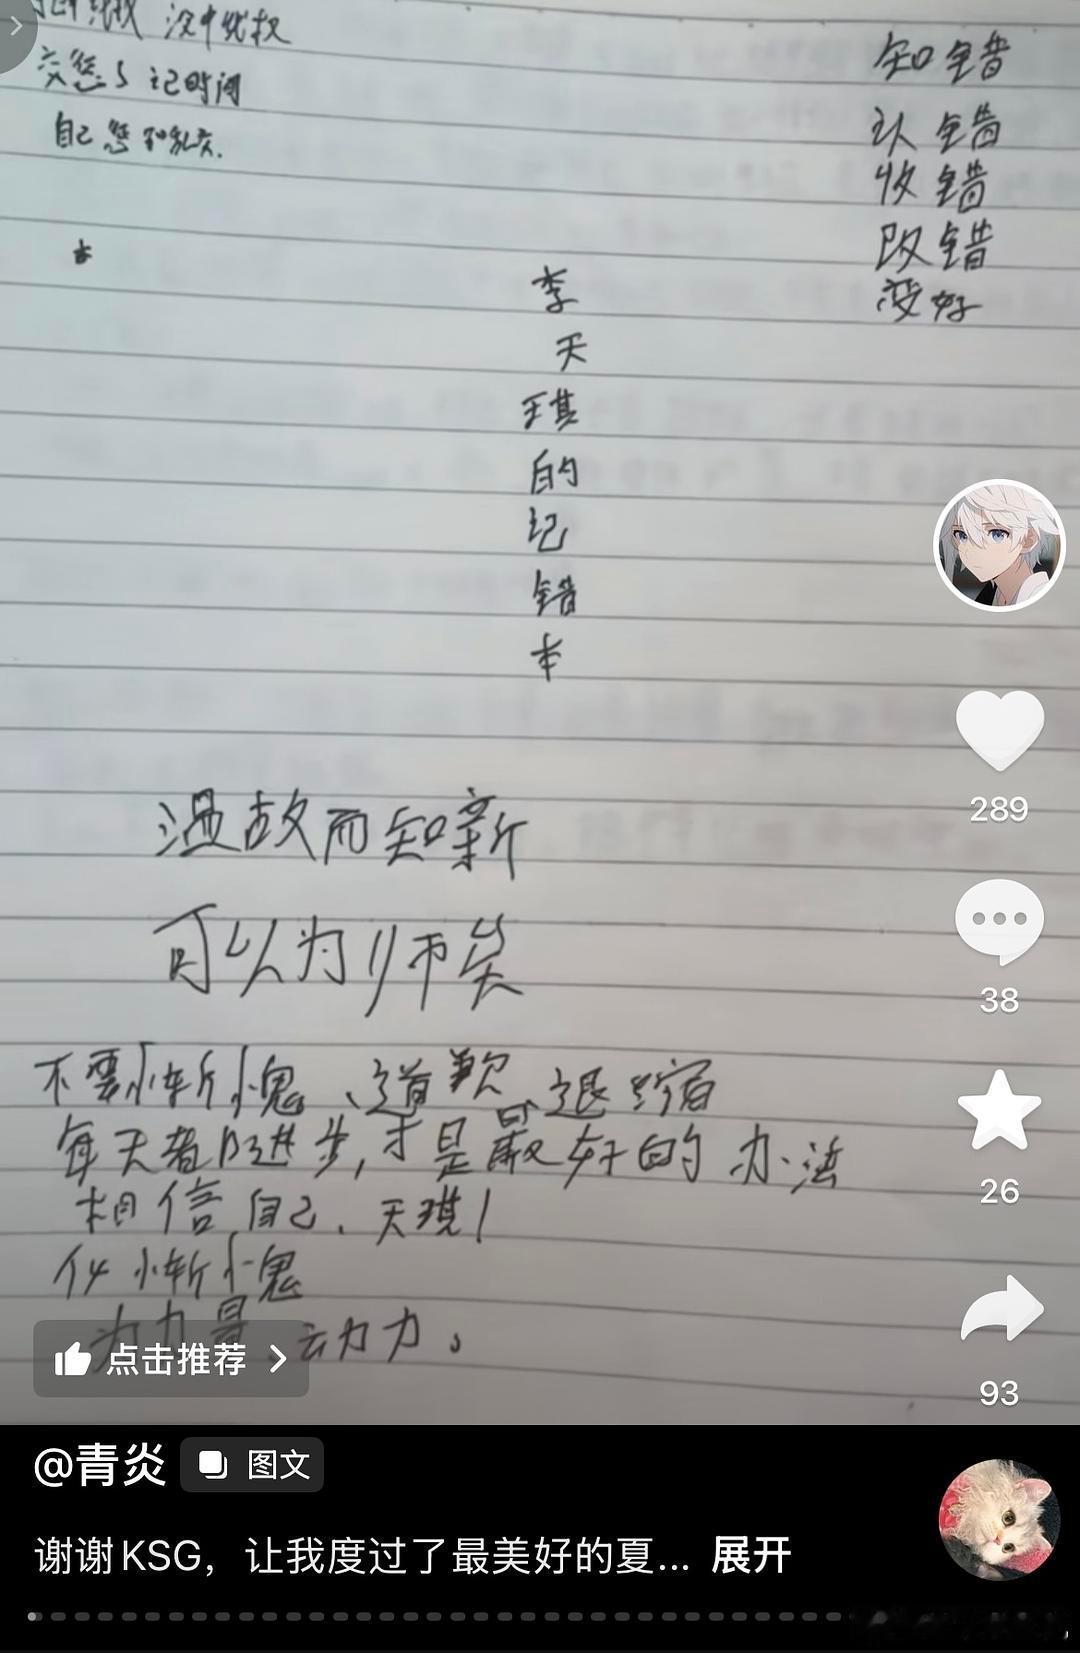 没中优权
记时间
自己
知错
认错
收错
改错
变好
李
天
琪
的
记
错
本
温故而知新
可以为师矣
不要惭愧、道歉、退缩
每天都进步,才是最好的办法
相信自己、天琪!
化惭愧
为力量 动力。
289
38
26
93
点击推荐
@青炎 图文
谢谢KSG，让我度过了最美好的夏... 展开